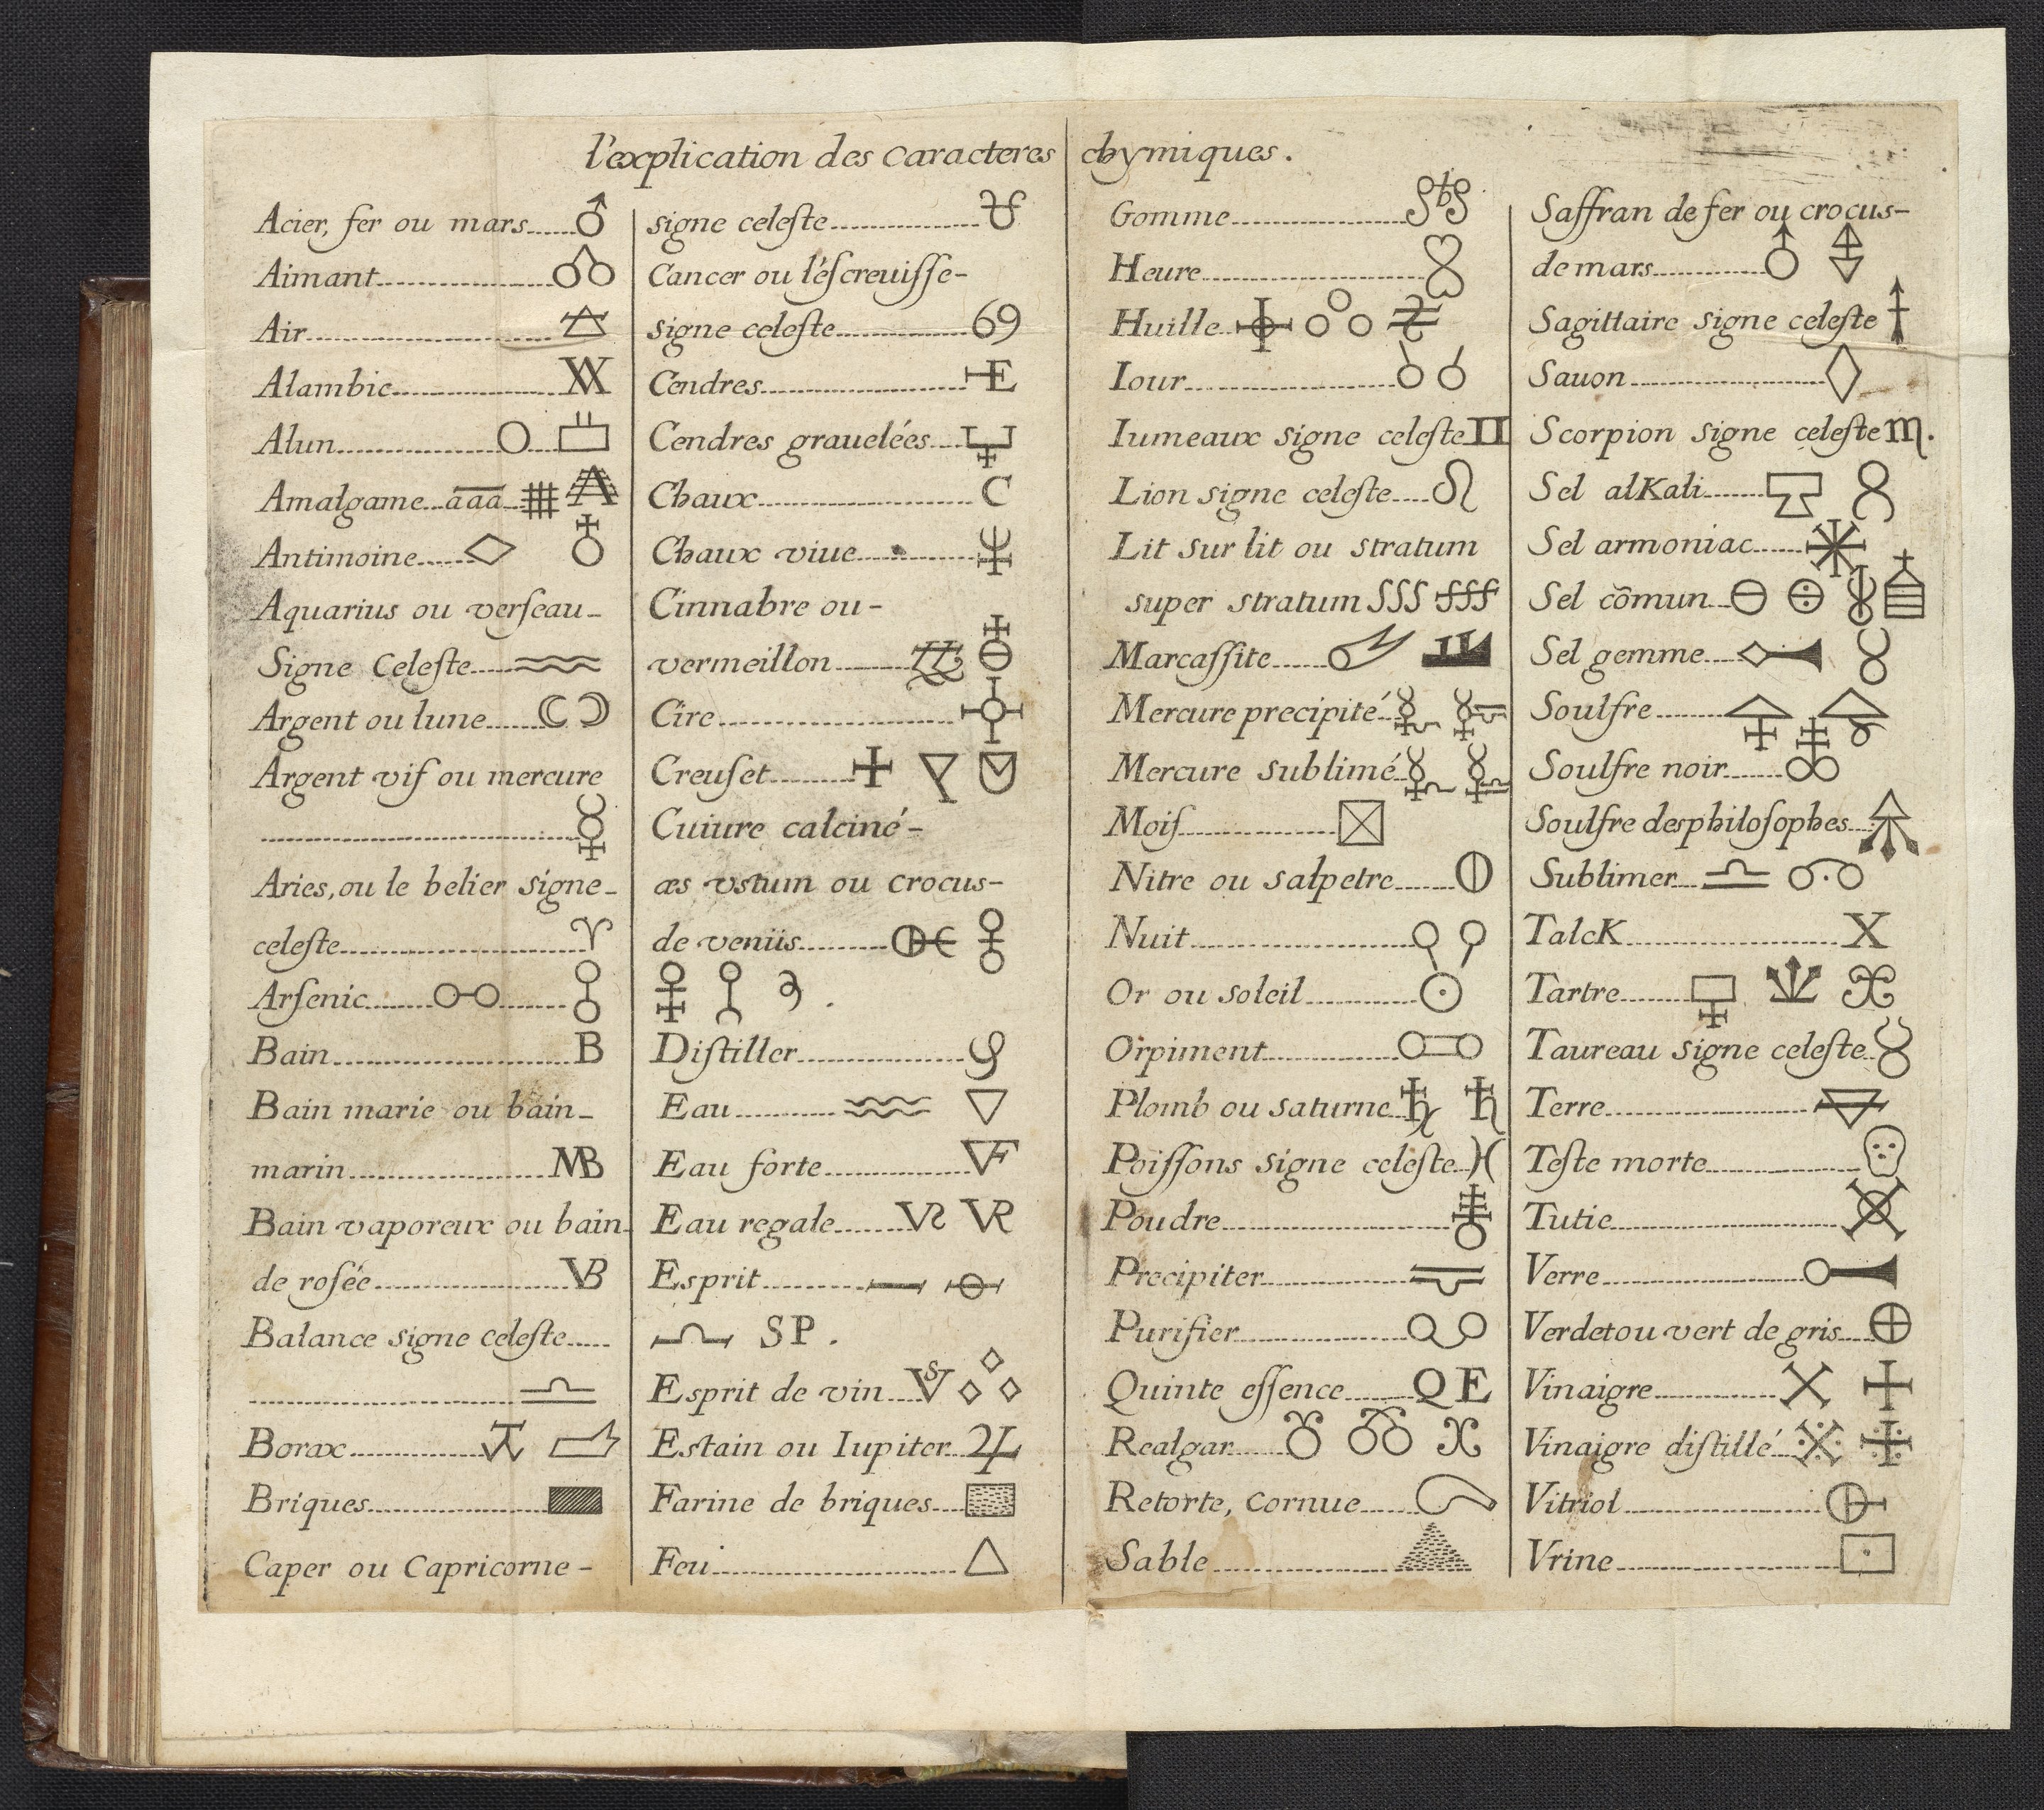 l'explication des caracteres chymiques.
Acier, fer ou mars ♂
Aimant
Air
Alambic XX
Alun
Amalgame aaa
Antimoine
Aquarius ou verſeau-
Signe Celeſte
Argent ou lune
Argent vif ou mercure
☿
Aries, ou le belier signe-
celeſte ♈
Arſenic
Bain B
Bain marie ou bain-
marin MB
Bain vaporeux ou bain-
de roſée VB
Balance signe celeſte
♎
Borax
Briques
Caper ou Capricorne -
signe celeſte
Cancer ou l'éſcreuiſſe-
signe celeſte 69
Cendres E
Cendres grauelées
Chaux C
Chaux viue
Cinnabre ou-
vermeillon
Cire
Creuſet
Cuiure calciné-
æs vstum ou crocus-
de venüs
Diſtiller
Eau ▽
Eau forte VF
Eau regale VR
Esprit
SP.
Esprit de vin VS
Estain ou Iupiter ♃
Farine de briques
Feu △
Gomme
Heure
Huille
Iour
Iumeaux signe celeſte ♊
Lion signe celeſte ♌
Lit sur lit ou stratum
super stratum SSS
Marcaſſite
Mercure precipité
Mercure sublimé
Moiſ
Nitre ou salpetre
Nuit
Or ou soleil ☉
Orpiment
Plomb ou saturne ♄
Poiſſons signe celeſte ♓
Poudre
Precipiter
Purifier
Quinte eſſence QE
Realgar
Retorte, cornue
Sable
Saffran de fer ou crocus-
de mars
Sagittaire signe celeſte
Sauon
Scorpion signe celeſte ♏.
Sel alKali
Sel armoniac
Sel cõmun
Sel gemme
Soulfre
Soulfre noir
Soulfre des philoſophes
Sublimer
TalcK X
Tartre
Taureau signe celeſte ♉
Terre
Teſte morte
Tutie
Verre
Verdet ou vert de gris
Vinaigre
Vinaigre diſtillé
Vitriol
Vrine